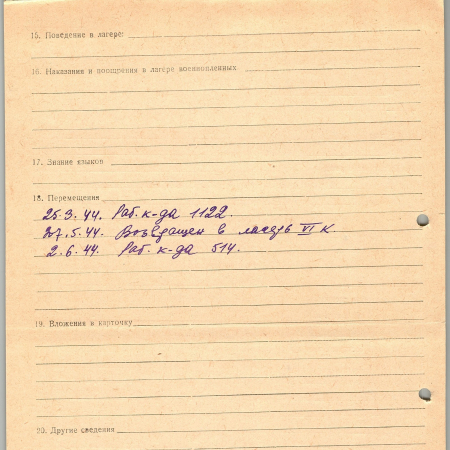 15. Поведение в лагере:
16. Наказания и поощрения в лагере военнопленных
17. Знание языков
18. Перемещения
25.3.44. Раб. к-да 1122.
27.5.44. Возвращен в лагерь VI К
2.6.44. Раб. к-да 514.
19. Вложения в карточку
20. Другие сведения